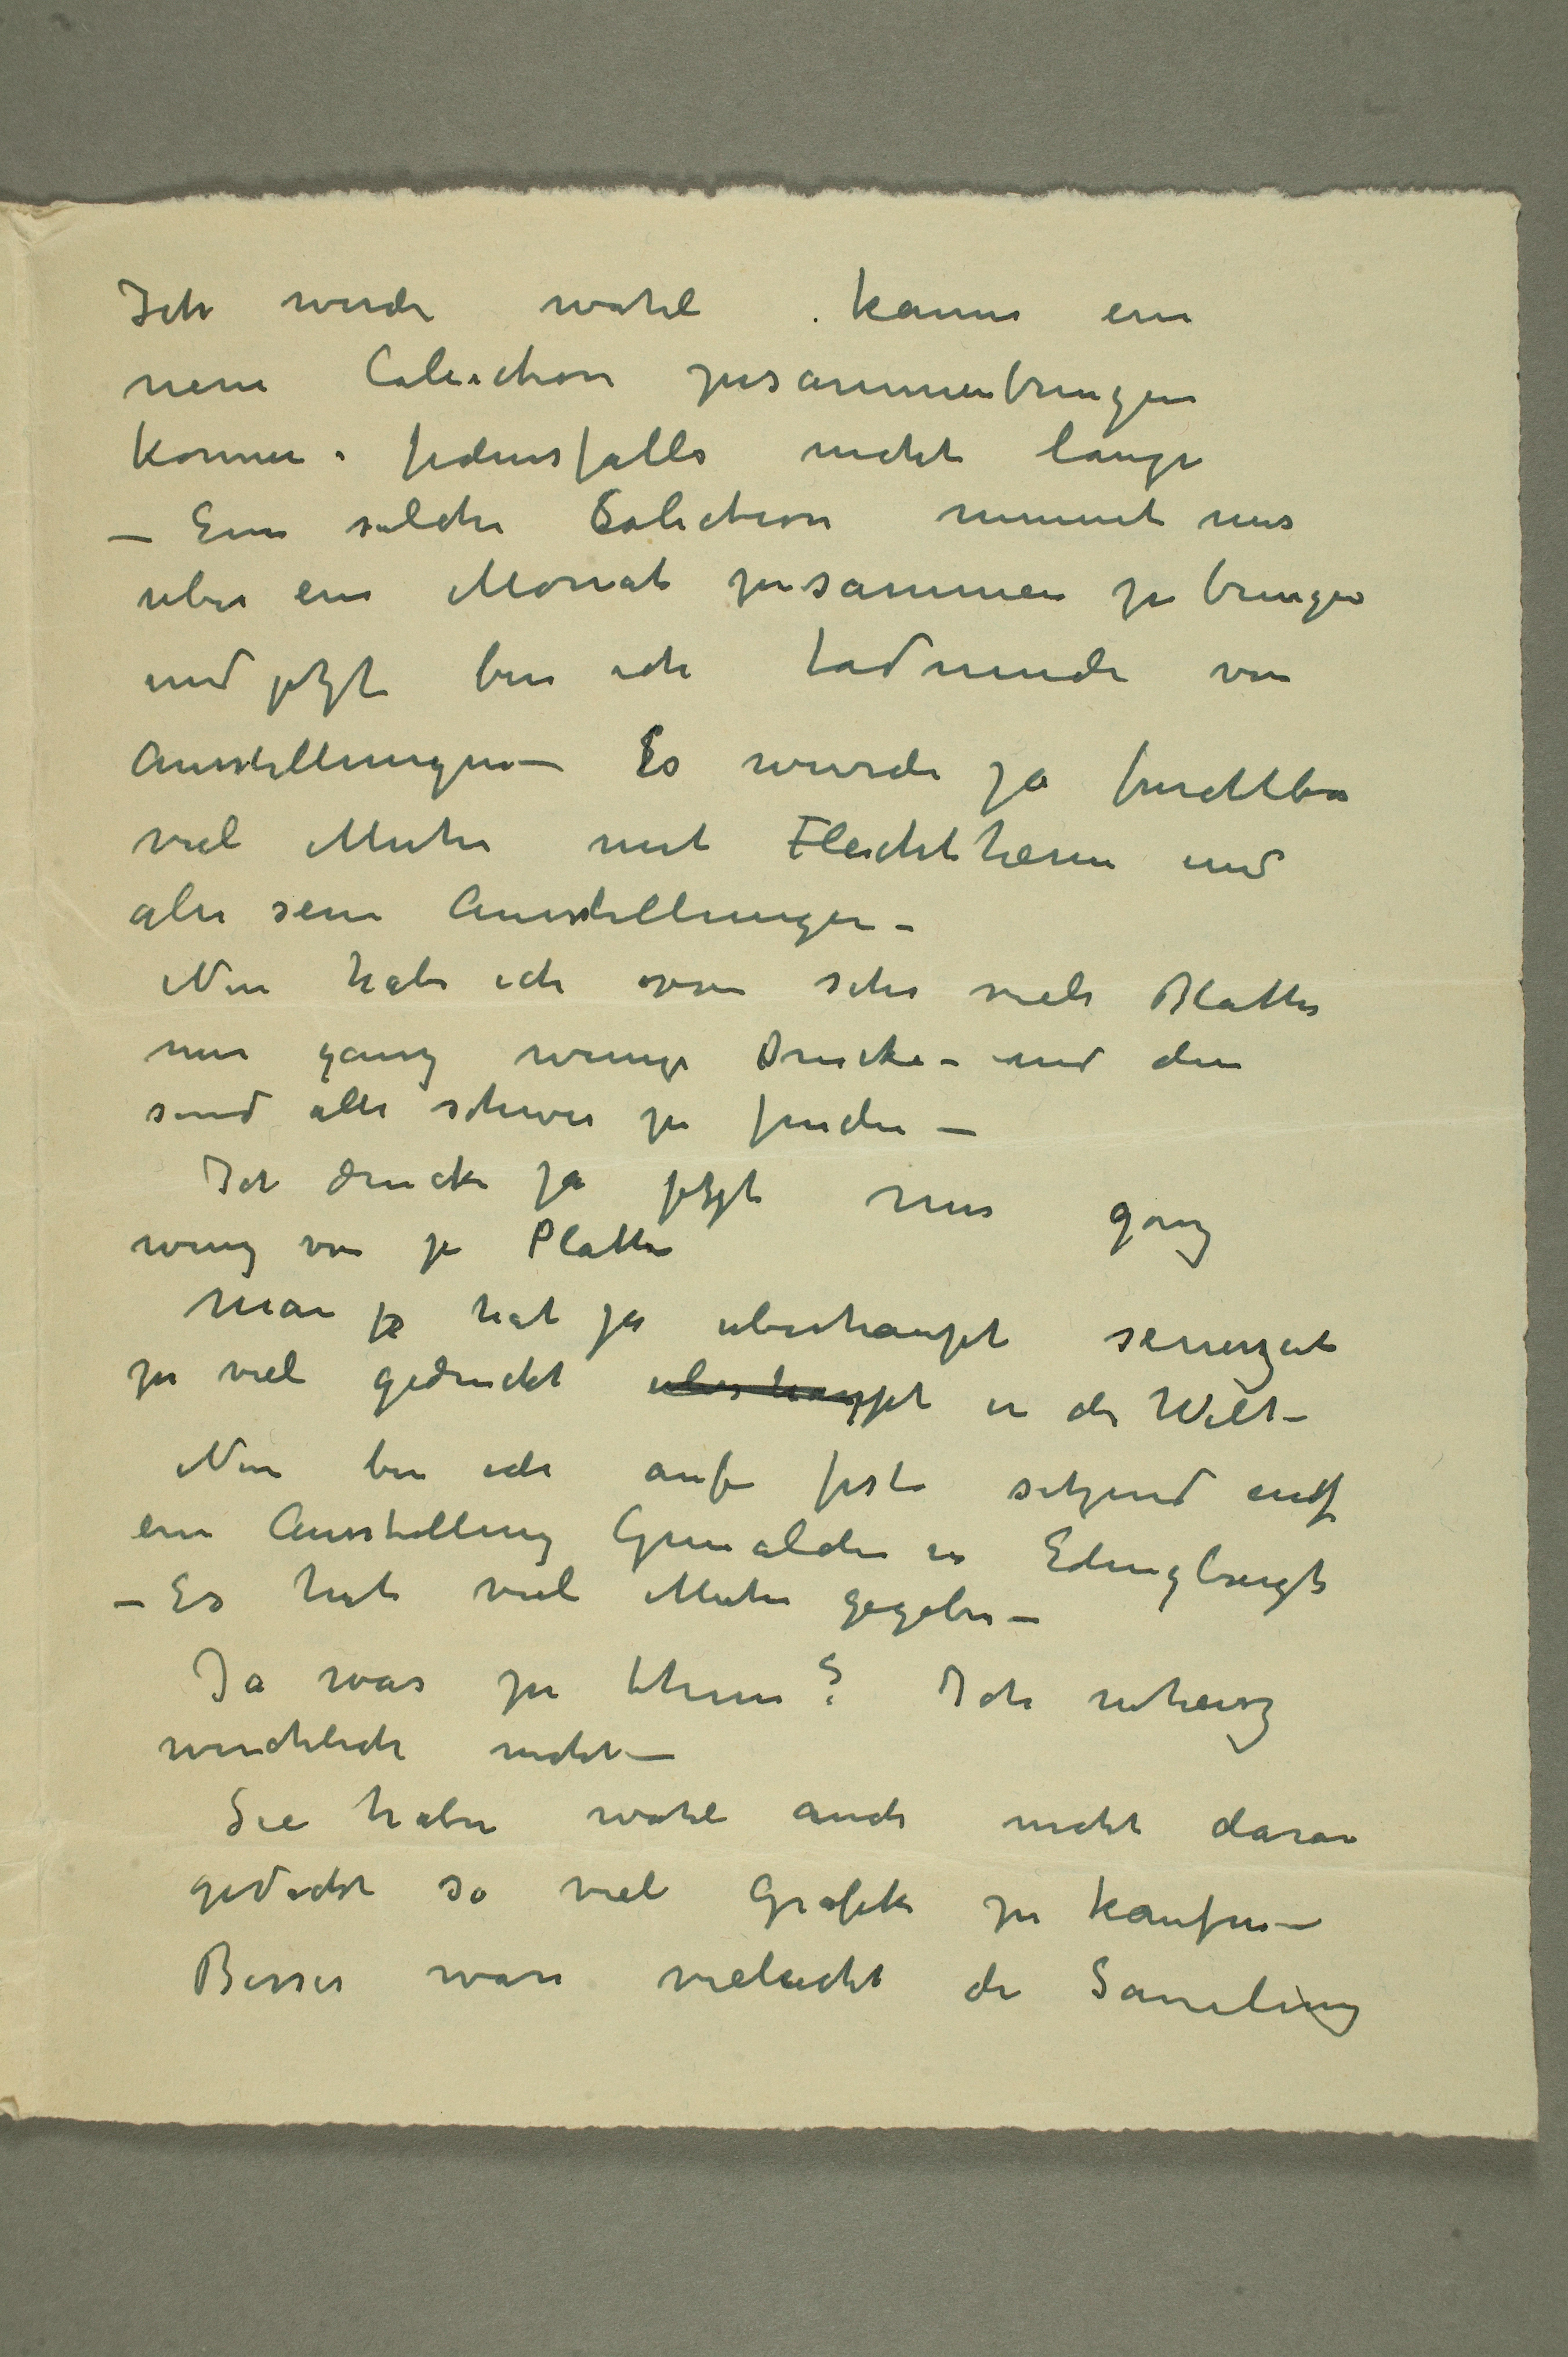 Ich werde wohl kaum eine
neue Colection zusammenbringen
konnen. jedensfalls nicht lange
– Eine solche Colection nimmt mir
uber ein Monat zusammen zu bringen
und jetzt bin ich todmude von
Ausstellungen – Es wurde ja furchtbar
viel Muhe mit Flechtheim und
aller seine Ausstellungen –
Nun habe ich von sehr viele Blatter
nur ganz wenige Drucke – und die
sind alle schwer zu finden –
Ich drucke ja jetzt nur ganz
wenig von je Platte
Man hat ja uberhaupt seinerzeit
zu viel gedruckt uberhaupt in der Welt –
Nun bin ich aufs feste sitzend auf
eine Ausstellung Gemalden in Edingburgh
– Es hat viel Muhe gegeben –
Ja was zu thun? Ich weisz
wirchlich nicht –
Sie haben wohl auch nicht daran
gedacht so viel Grafik zu kaufen –
Besser ware vieleicht die Samling